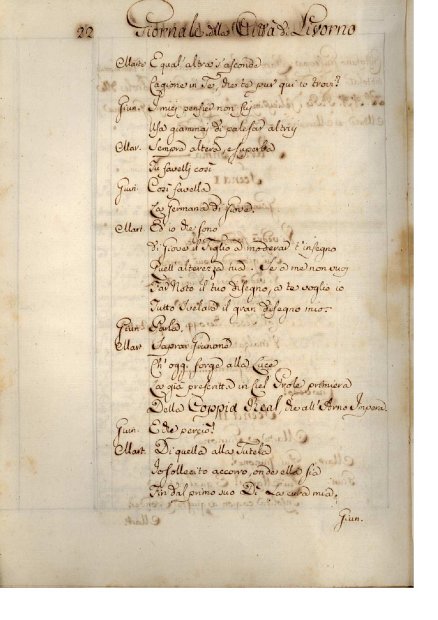 22 Giornale della Città di Livorno
Marte E qual altra s'asconde
Cagione in Te, che te pur qui io trovi?
Giun. I miei pensier non
Usa giammai di palesar altrui
Mar. Sempre altera, e superba
Tu favelli così
Giun. Così favella
La Germana di Giove.
Mart. Ed io che sono
Di Giove il Figlio a moderar t'insegno
Quell'alterezza tua. Se a me non vuoi
Far Noto il tuo disegno, a te voglio io
Tutto svelare il gran disegno mio.
Giun. Parla.
Mart. Saprai Giunone
Ch'oggi sorge alla Luce
La già prescritta in Ciel Prole primiera
Della Coppia Real, che all'Arno Impera
Giun. E che perciò?
Mart. Di quella alla Tutela
Io sollecito accorro, onde ella sia
Fin dal primo suo Dì La cura mia.
Giun.